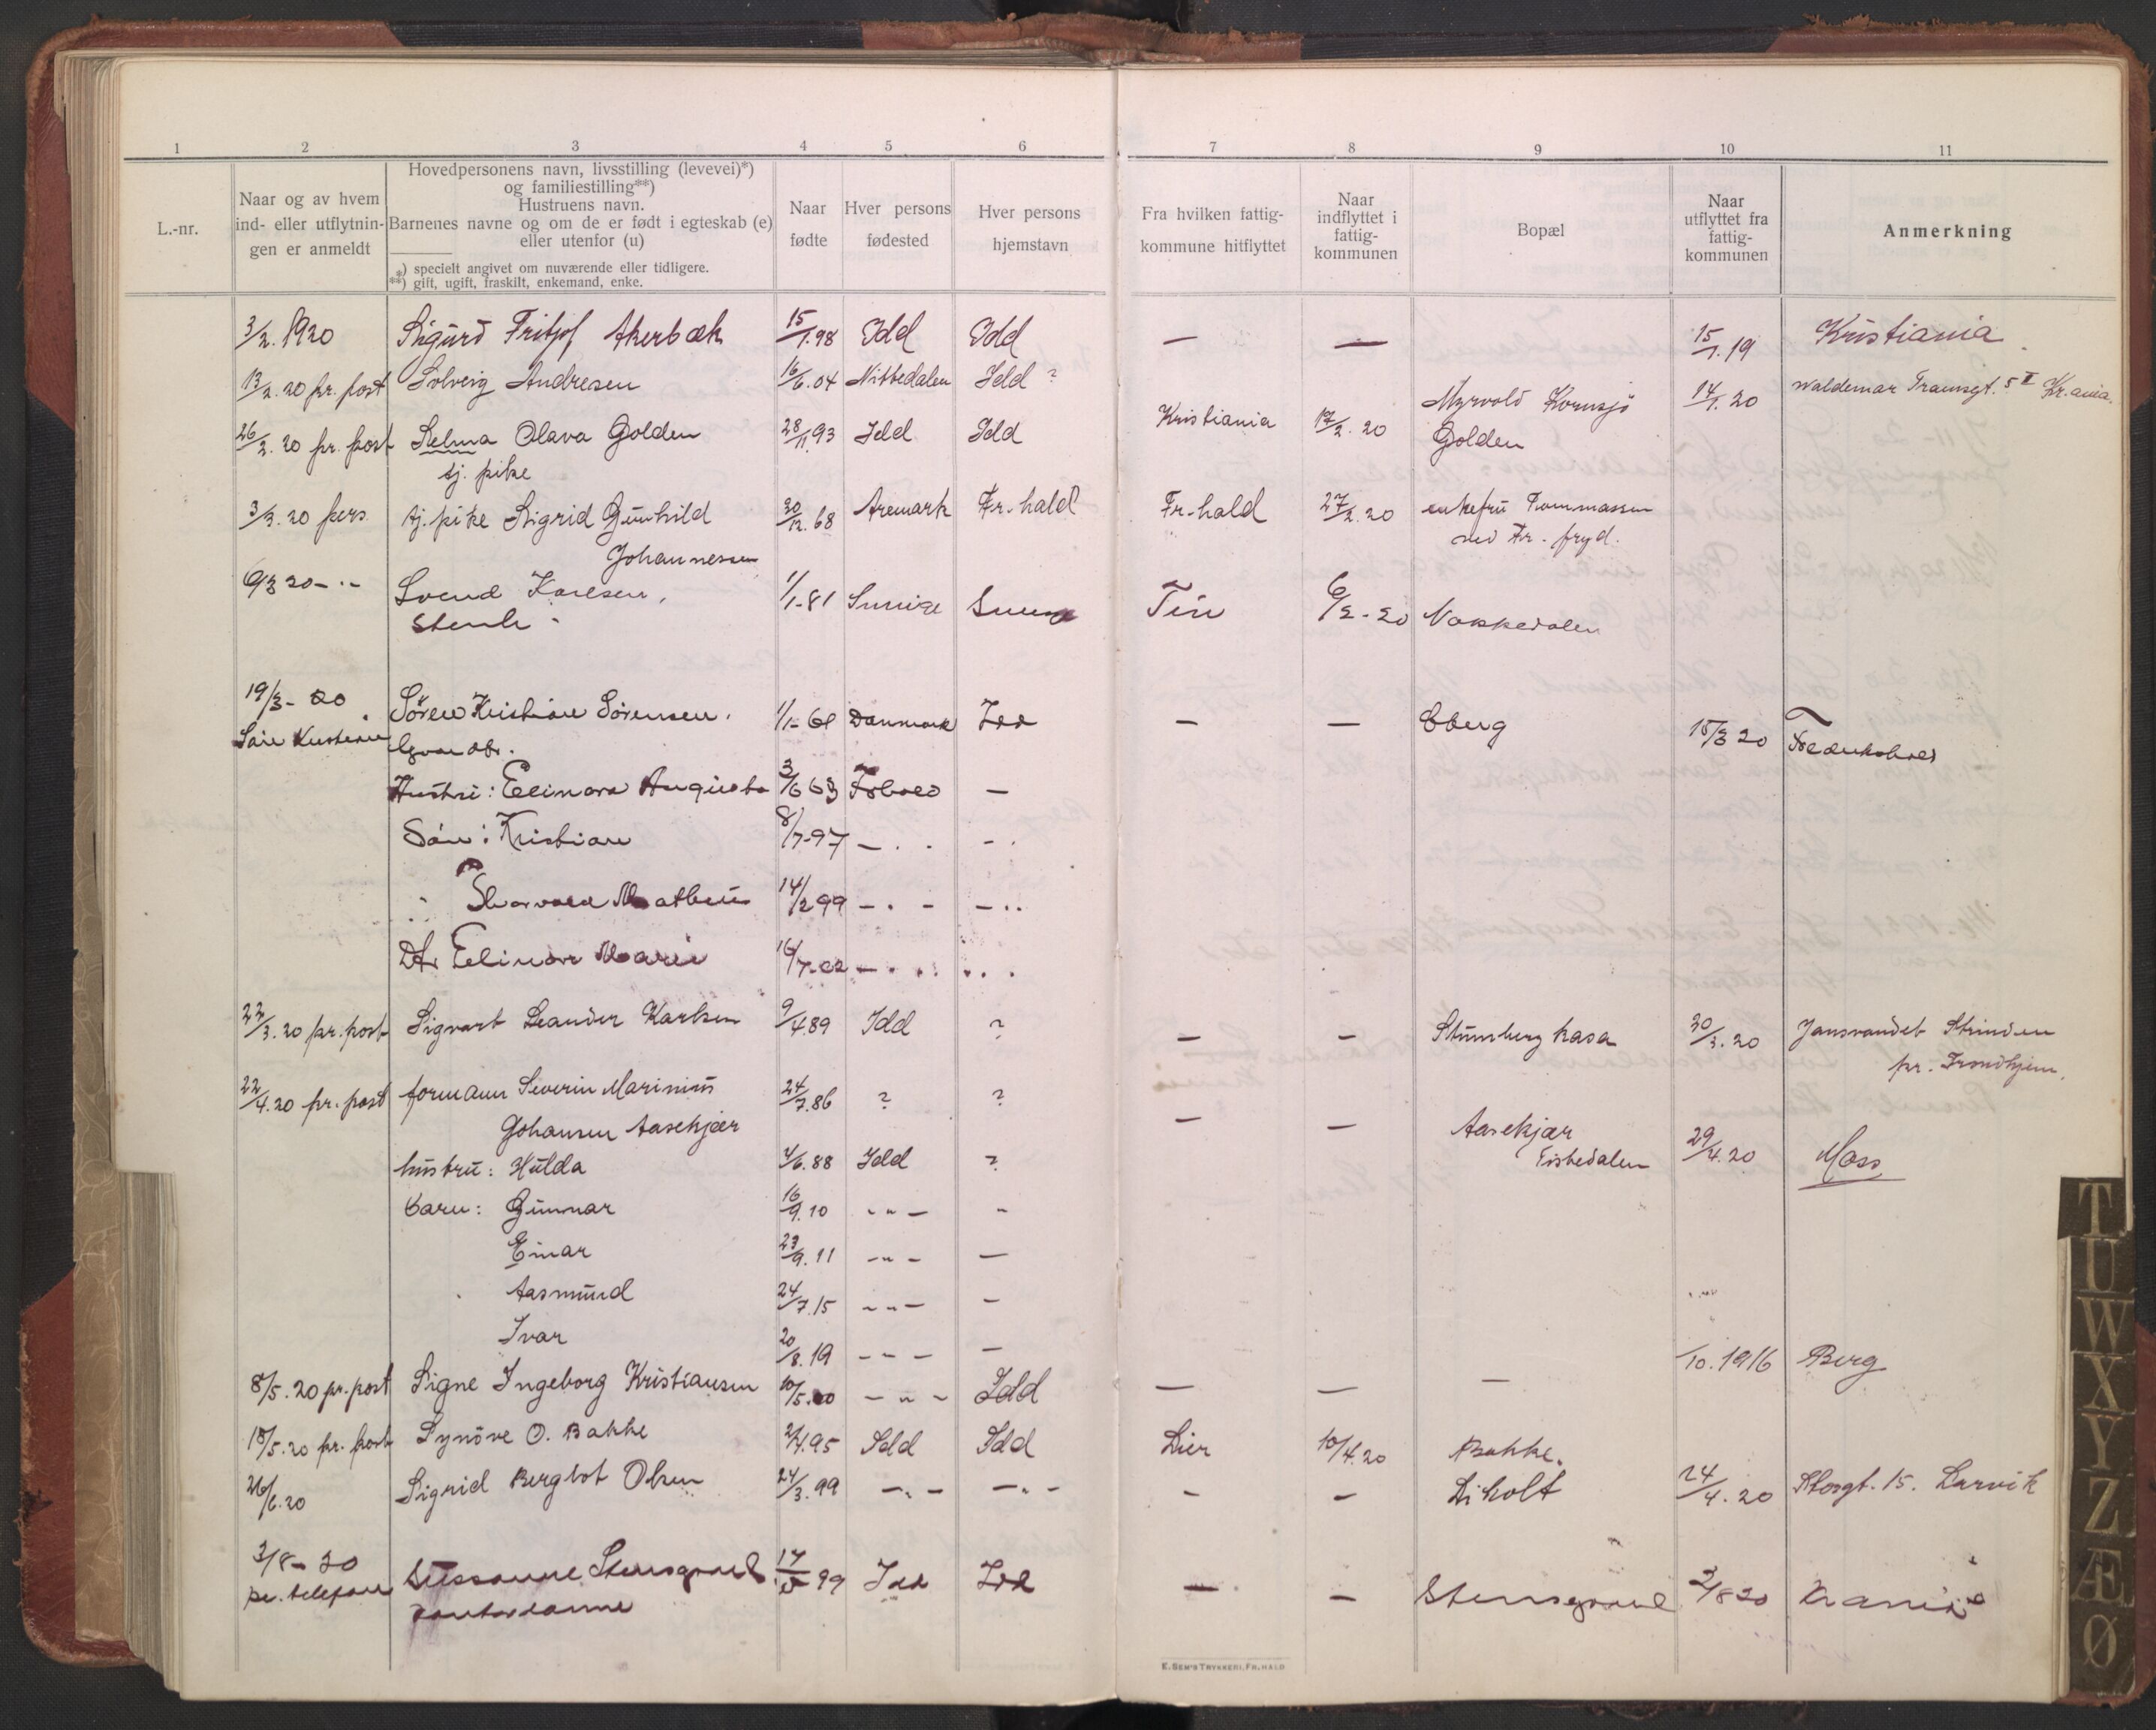 1 2 3 4 5 6 7 8 9 10 11
L.-nr.
Naar og av hvem
ind- eller utflytnin-
gen er anmeldt
Hovedpersonens navn, livsstilling (levevei)*)
og familiestilling**)
Hustruens navn.
Barnenes navne og om de er født i egteskab (e)
eller utenfor (u)
*) specielt angivet om nuværende eller tidligere.
**) gift, ugift, fraskilt, enkemand, enke.
Naar
fødte
Hver persons
fødested
Hver persons
hjemstavn
Fra hvilken fattig-
kommune hitflyttet
Naar
indflyttet i
fattig-
kommunen
Bopæl
Naar
utflyttet fra
fattig-
kommunen
Anmerkning
3/2. 1920 Sigurd Fritjof Akerbæk 15/1.98 Idd Idd — — 15/1.19 Kristiania
13/2. 20 pr. post Solveig Andresen 16/6.04 Nittedalen Idd ? Myrvold Kornsjö 14/1.20 Waldemar Transgt. 5 I Kr.ania.
26/2. 20 pr. post Selma Olava Golden 28/11.93 Idd Idd Kristiania 17/2.20 Golden
tj. pike
3/3. 20 pers tj. pike Sigrid Gunhild 20/12.68 Aremark Fr.hald Fr.hald 27/2.20 enkefru Tommassen
Johannessen ved Fr. fryd.
6/3 20 - " - Svend Karlsen, 1/1-81 Sverige Tin 6/2-20 Nokkedalen
19/3- 20 Sören Kristian Sörensen. Danmark Idd — — Eberg 15/3 20 Fredrikshald
Hustru: Elinora Augusta 3/6 63 Frhald —
Sön: Kristian 8/7-97 — " " - "
14/2 99 — " - — " "
Dtr Elinor Marie
22/3. 20 pr. post Sigvart Leander Karlsen 9/4.89 Idd ? — — Stumberg hasa 30/3.20 Jansvandet Strinden
pr. Trondhjem.
22/4. 20 pr. post formann Severin Marinius 24/7.86 ? ?
Johansen Aasekjær — — Aasekjær 29/4.20 Moss
hustru: Hulda 4/6.88 Idd ?
barn: Gunnar 16/9.10 - " — -
Einar 23/9.11 - " - —
Aasmund 24/7.15 - " — —
Ivar 20/8.19 - - - —
8/5. 20 pr. post Signe Ingeborg Kristiansen 10/5.00 - " - Idd — — — /10. 1916 Berg
18/5. 20 pr. post Synöve O. Bakke Idd Idd Lier 10/4.20 Bakke.
26/6.20 Sigrid Bergliot Olsen 24/3.99 - " - — " - - — Liholt 24/4.20 Storgt. 15. Larvik
3/8- 20 Stensgaard 17/5 99 Idd Idd — — Stensgaard 2/8 20 Krania
pr. telefon kontordame
E. SEM'S TRYKKERI, FR.HALD
T
U
W
X
Y
Z
Æ
Ø